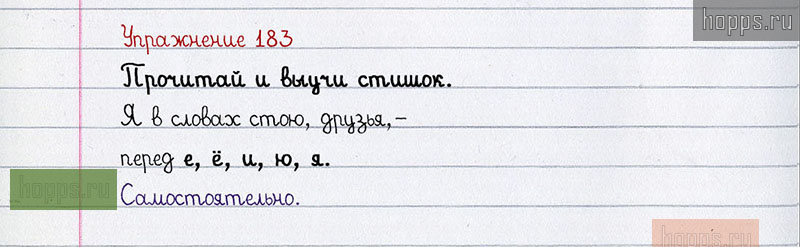 hopps.ru
Упражнение 183
Прочитай и выучи стишок.
Я в словах стою, друзья,–
перед е, ё, и, ю, я.
hopps.ru
Самостоятельно.
hopps.ru